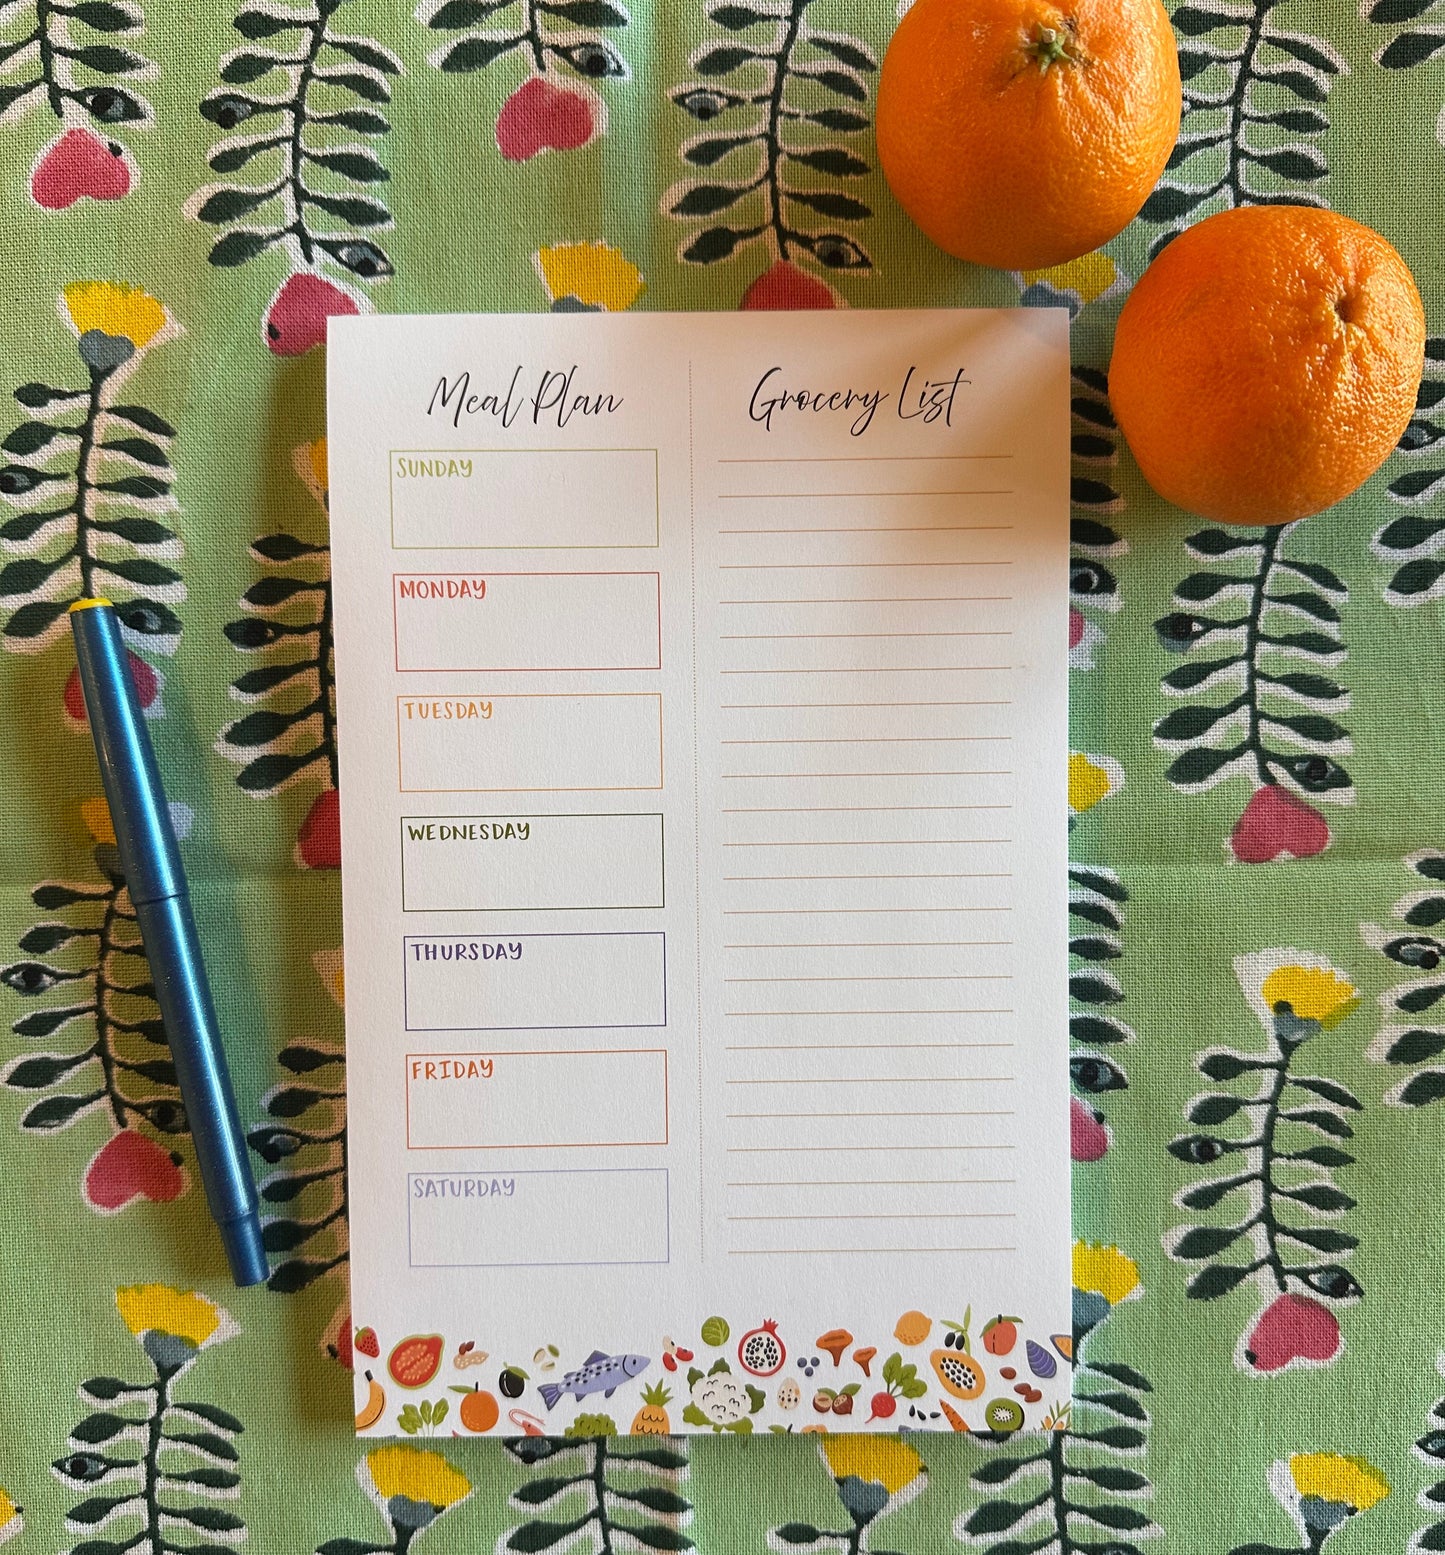 Meal Plan
SUNDAY
MONDAY
TUESDAY
WEDNESDAY
THURSDAY
FRIDAY
SATURDAY
Grocery List